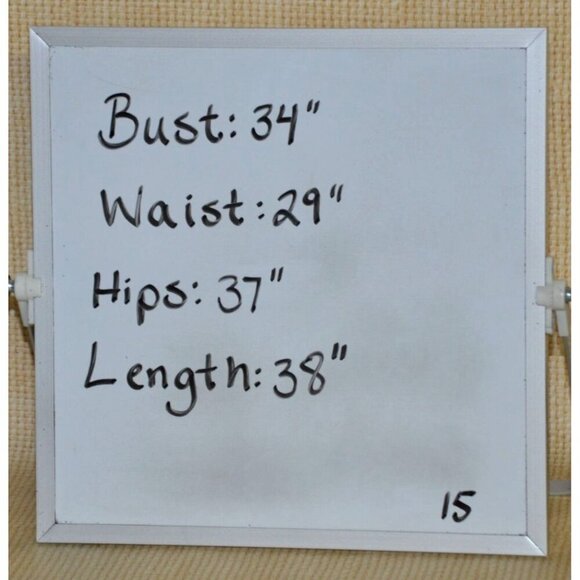 Bust: 34"
Waist: 29"
Hips: 37"
Length: 38"
15